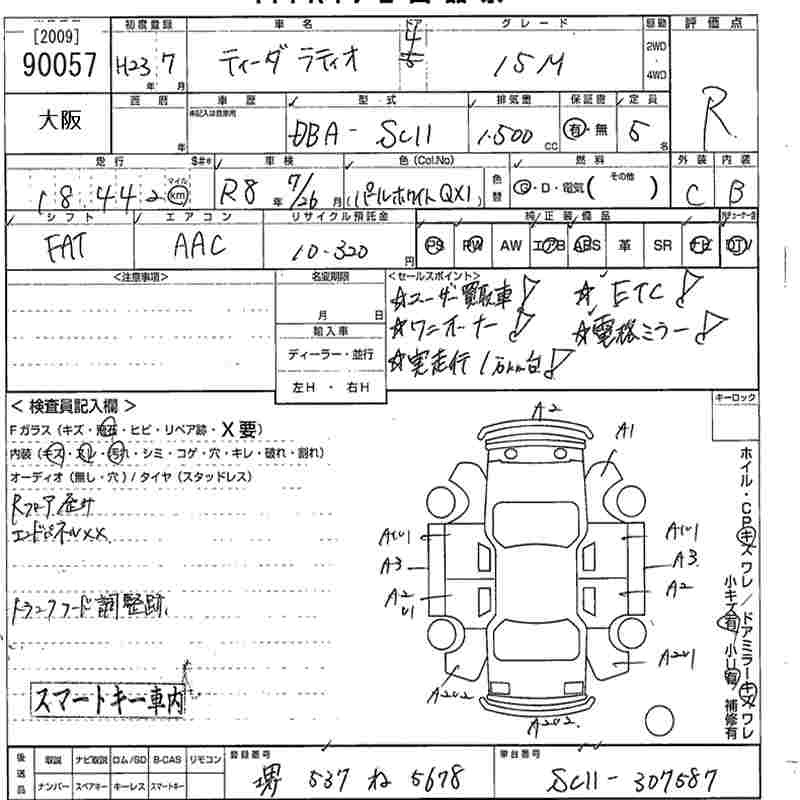 [2009]
90057
大阪
初度登録
H23 7
年 月
車名
ティーダ ラティオ
ドア
4
5
グレード
15M
駆動
2WD
4WD
評価点
R
西暦
年
車歴
未記入は自家用
型式
DBA - SC11
排気量
1.500
CC
保証書
有・無
定員
5
名
走行
18442
マイル
km
S#*
車検
R8 年 7/26 月
色(Col.No)
(パールホワイト QX1)
色替
燃料
G・D・電気( その他 )
外装
C
内装
B
シフト
FAT
エアコン
AAC
リサイクル預託金
10-320
円
純正装備品
PS PW AW エアB ABS 革 SR ナビ DTV
<注意事項>
名変期限
月 日
輸入車
ディーラー・並行
左H ・ 右H
<セールスポイント>
☆ユーザー買取車! ☆ ETC!
☆ワンオーナー! ☆電格ミラー!
☆実走行1万km台!
< 検査員記入欄 >
Fガラス(キズ・飛石・ヒビ・リペア跡・X要)
内装(キズ・スレ・汚れ・シミ・コゲ・穴・キレ・破れ・割れ)
オーディオ(無し・穴)/タイヤ(スタッドレス)
Rフロア歪み
エンドパネルXX
トランクフード調整跡
スマートキー車内
キーロック
A2
A1
AU1
A3
A2
U1
A2U2
A2U2
AU1
A3
A2
A2U1
ホイル・CPキズ ワレ/ドアミラーキズ ワレ
小キズ有 小U有 補修有
後送品
取説 ナビ取説 ロム/SD B-CAS リモコン
ナンバー スペアキー キーレス スマートキー
登録番号
堺 537 ね 5678
車台番号
SC11 - 307587